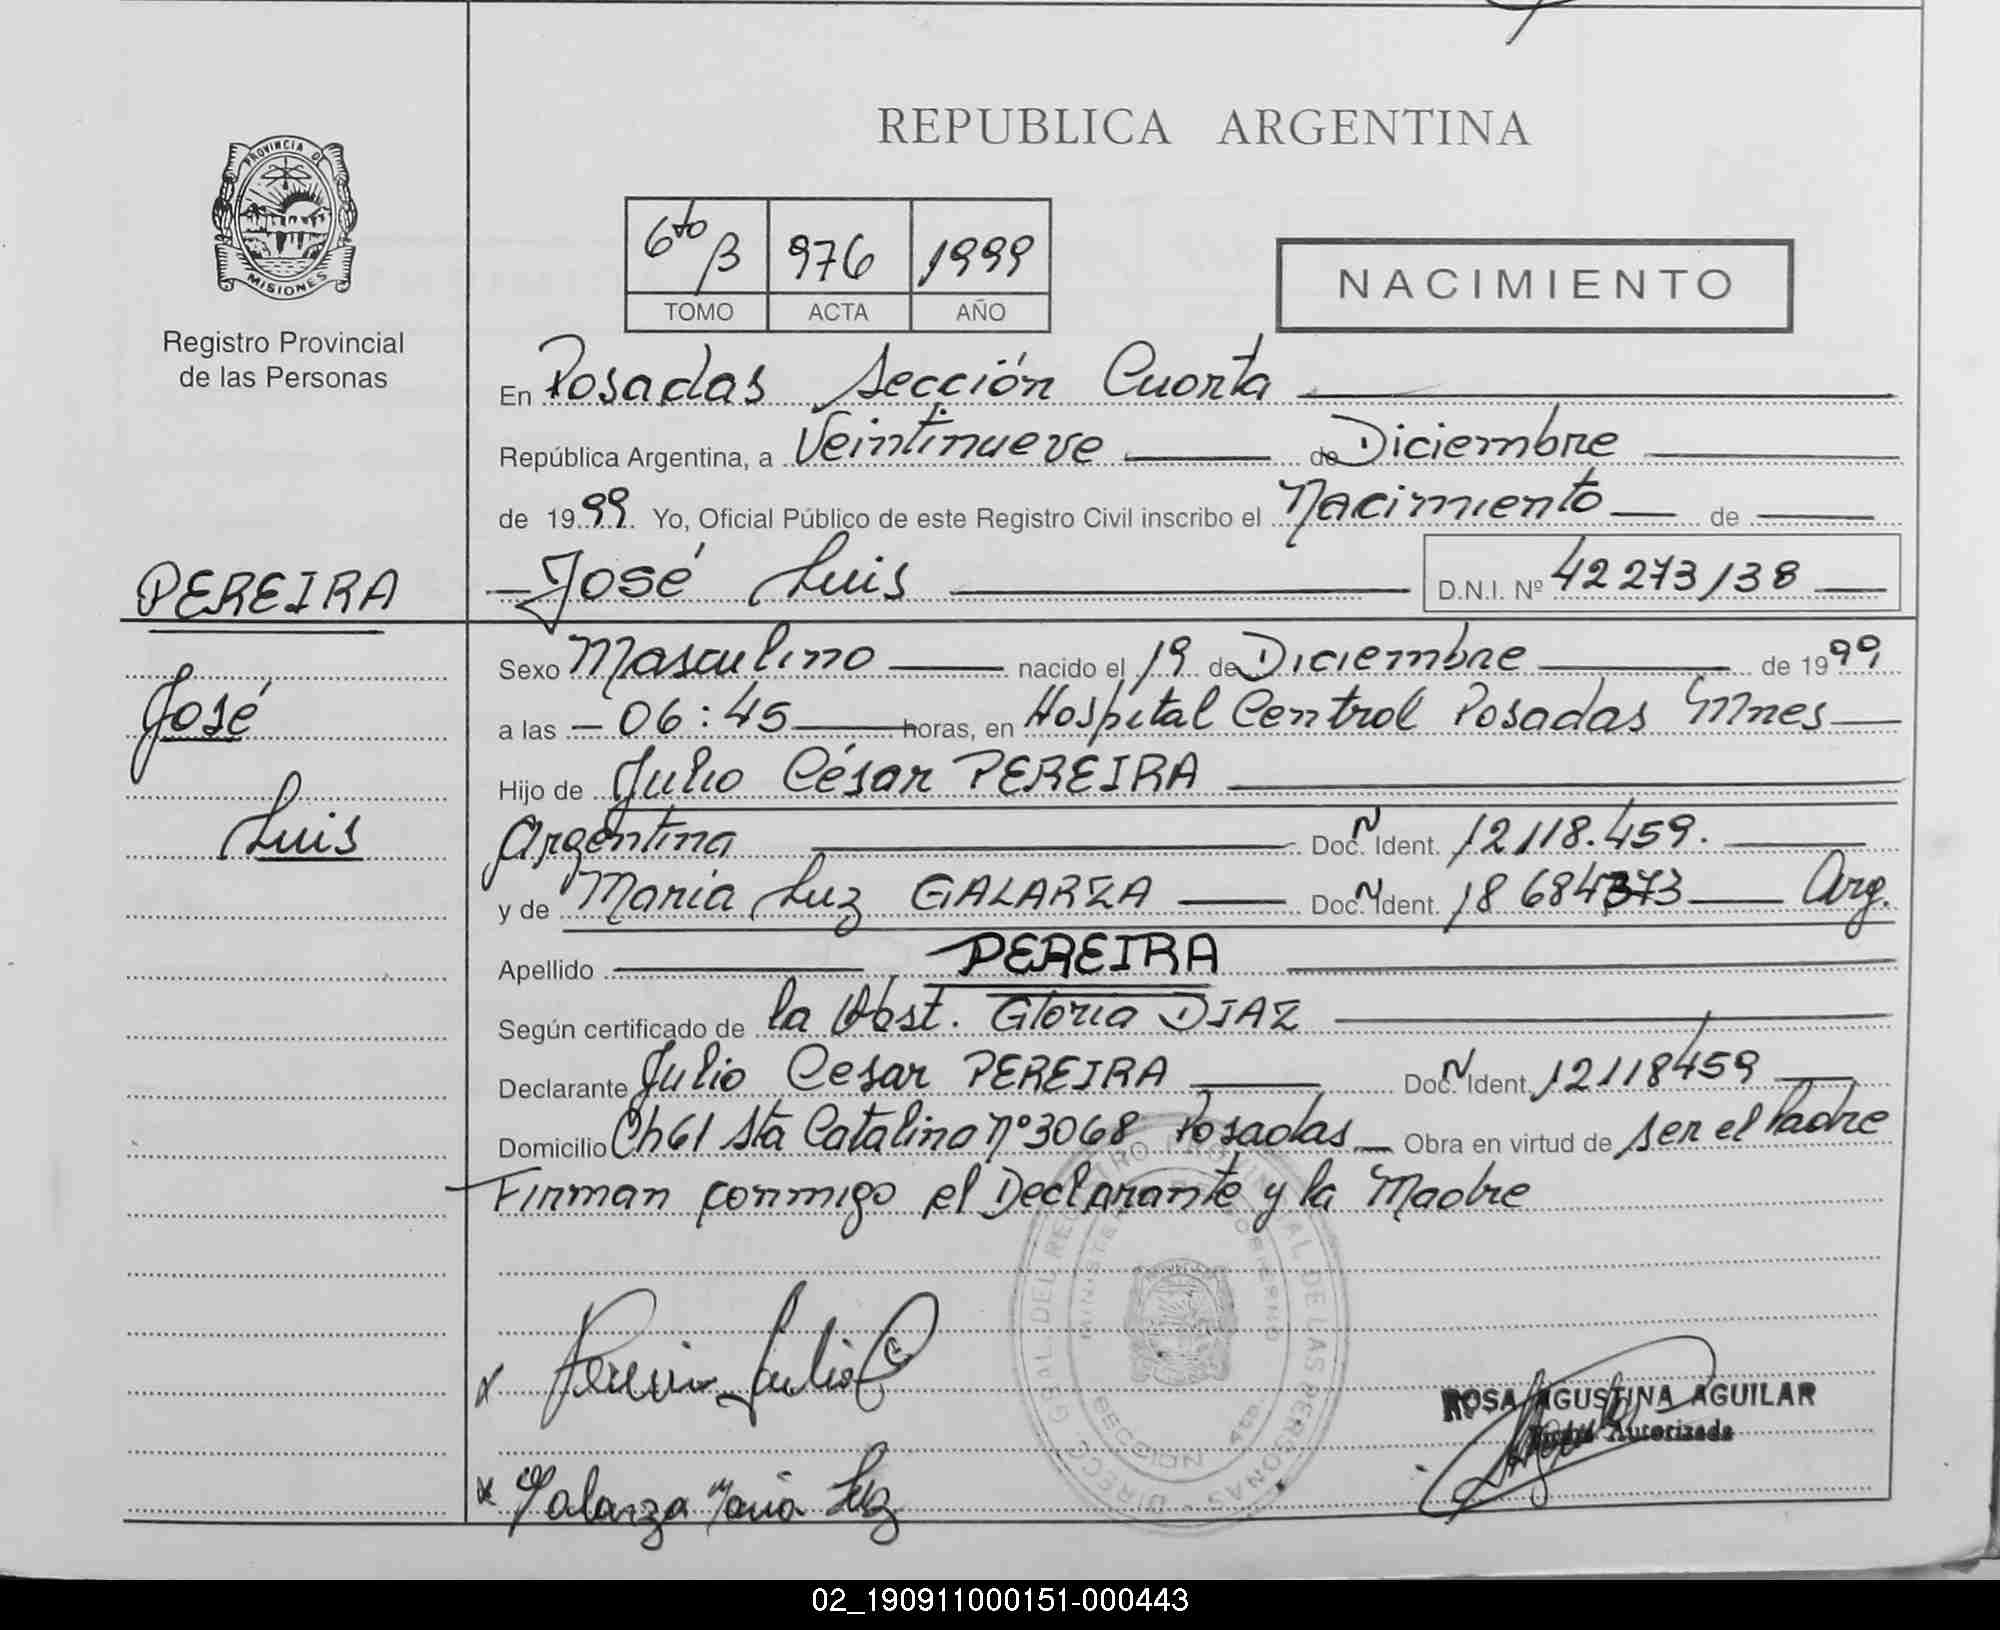 REPUBLICA ARGENTINA
PROVINCIA DE
MISIONES
Registro Provincial
de las Personas
6to B 976 1999
TOMO ACTA AÑO
NACIMIENTO
En Posadas Sección Cuarta
República Argentina, a Veintinueve de Diciembre
de 1999. Yo, Oficial Público de este Registro Civil inscribo el Nacimiento de
PEREIRA
José Luis D.N.I. Nº 42273138
José
Luis
Sexo Masculino nacido el 19 de Diciembre de 1999
a las 06:45 horas, en Hospital Central Posadas Mnes
Hijo de Julio César PEREIRA
Argentina Doc. N Ident. 12118.459.
y de Maria Luz GALARZA Doc. N Ident. 18684373 Arg.
Apellido PEREIRA
Según certificado de la Obst. Gloria DIAZ
Declarante Julio Cesar PEREIRA Doc. N Ident. 12118459
Domicilio Ch 61 Sta Catalina nº 3068 Posadas Obra en virtud de ser el Padre
Firman conmigo el Declarante y la Madre
DIRECC. GRAL. DEL REGISTRO PROVINCIAL DE LAS PERSONAS
SECCION 4ta.
x Pereira Julio C
ROSA AGUSTINA AGUILAR
Firma Autorizada
x Galarza Maria Luz
02_190911000151-000443